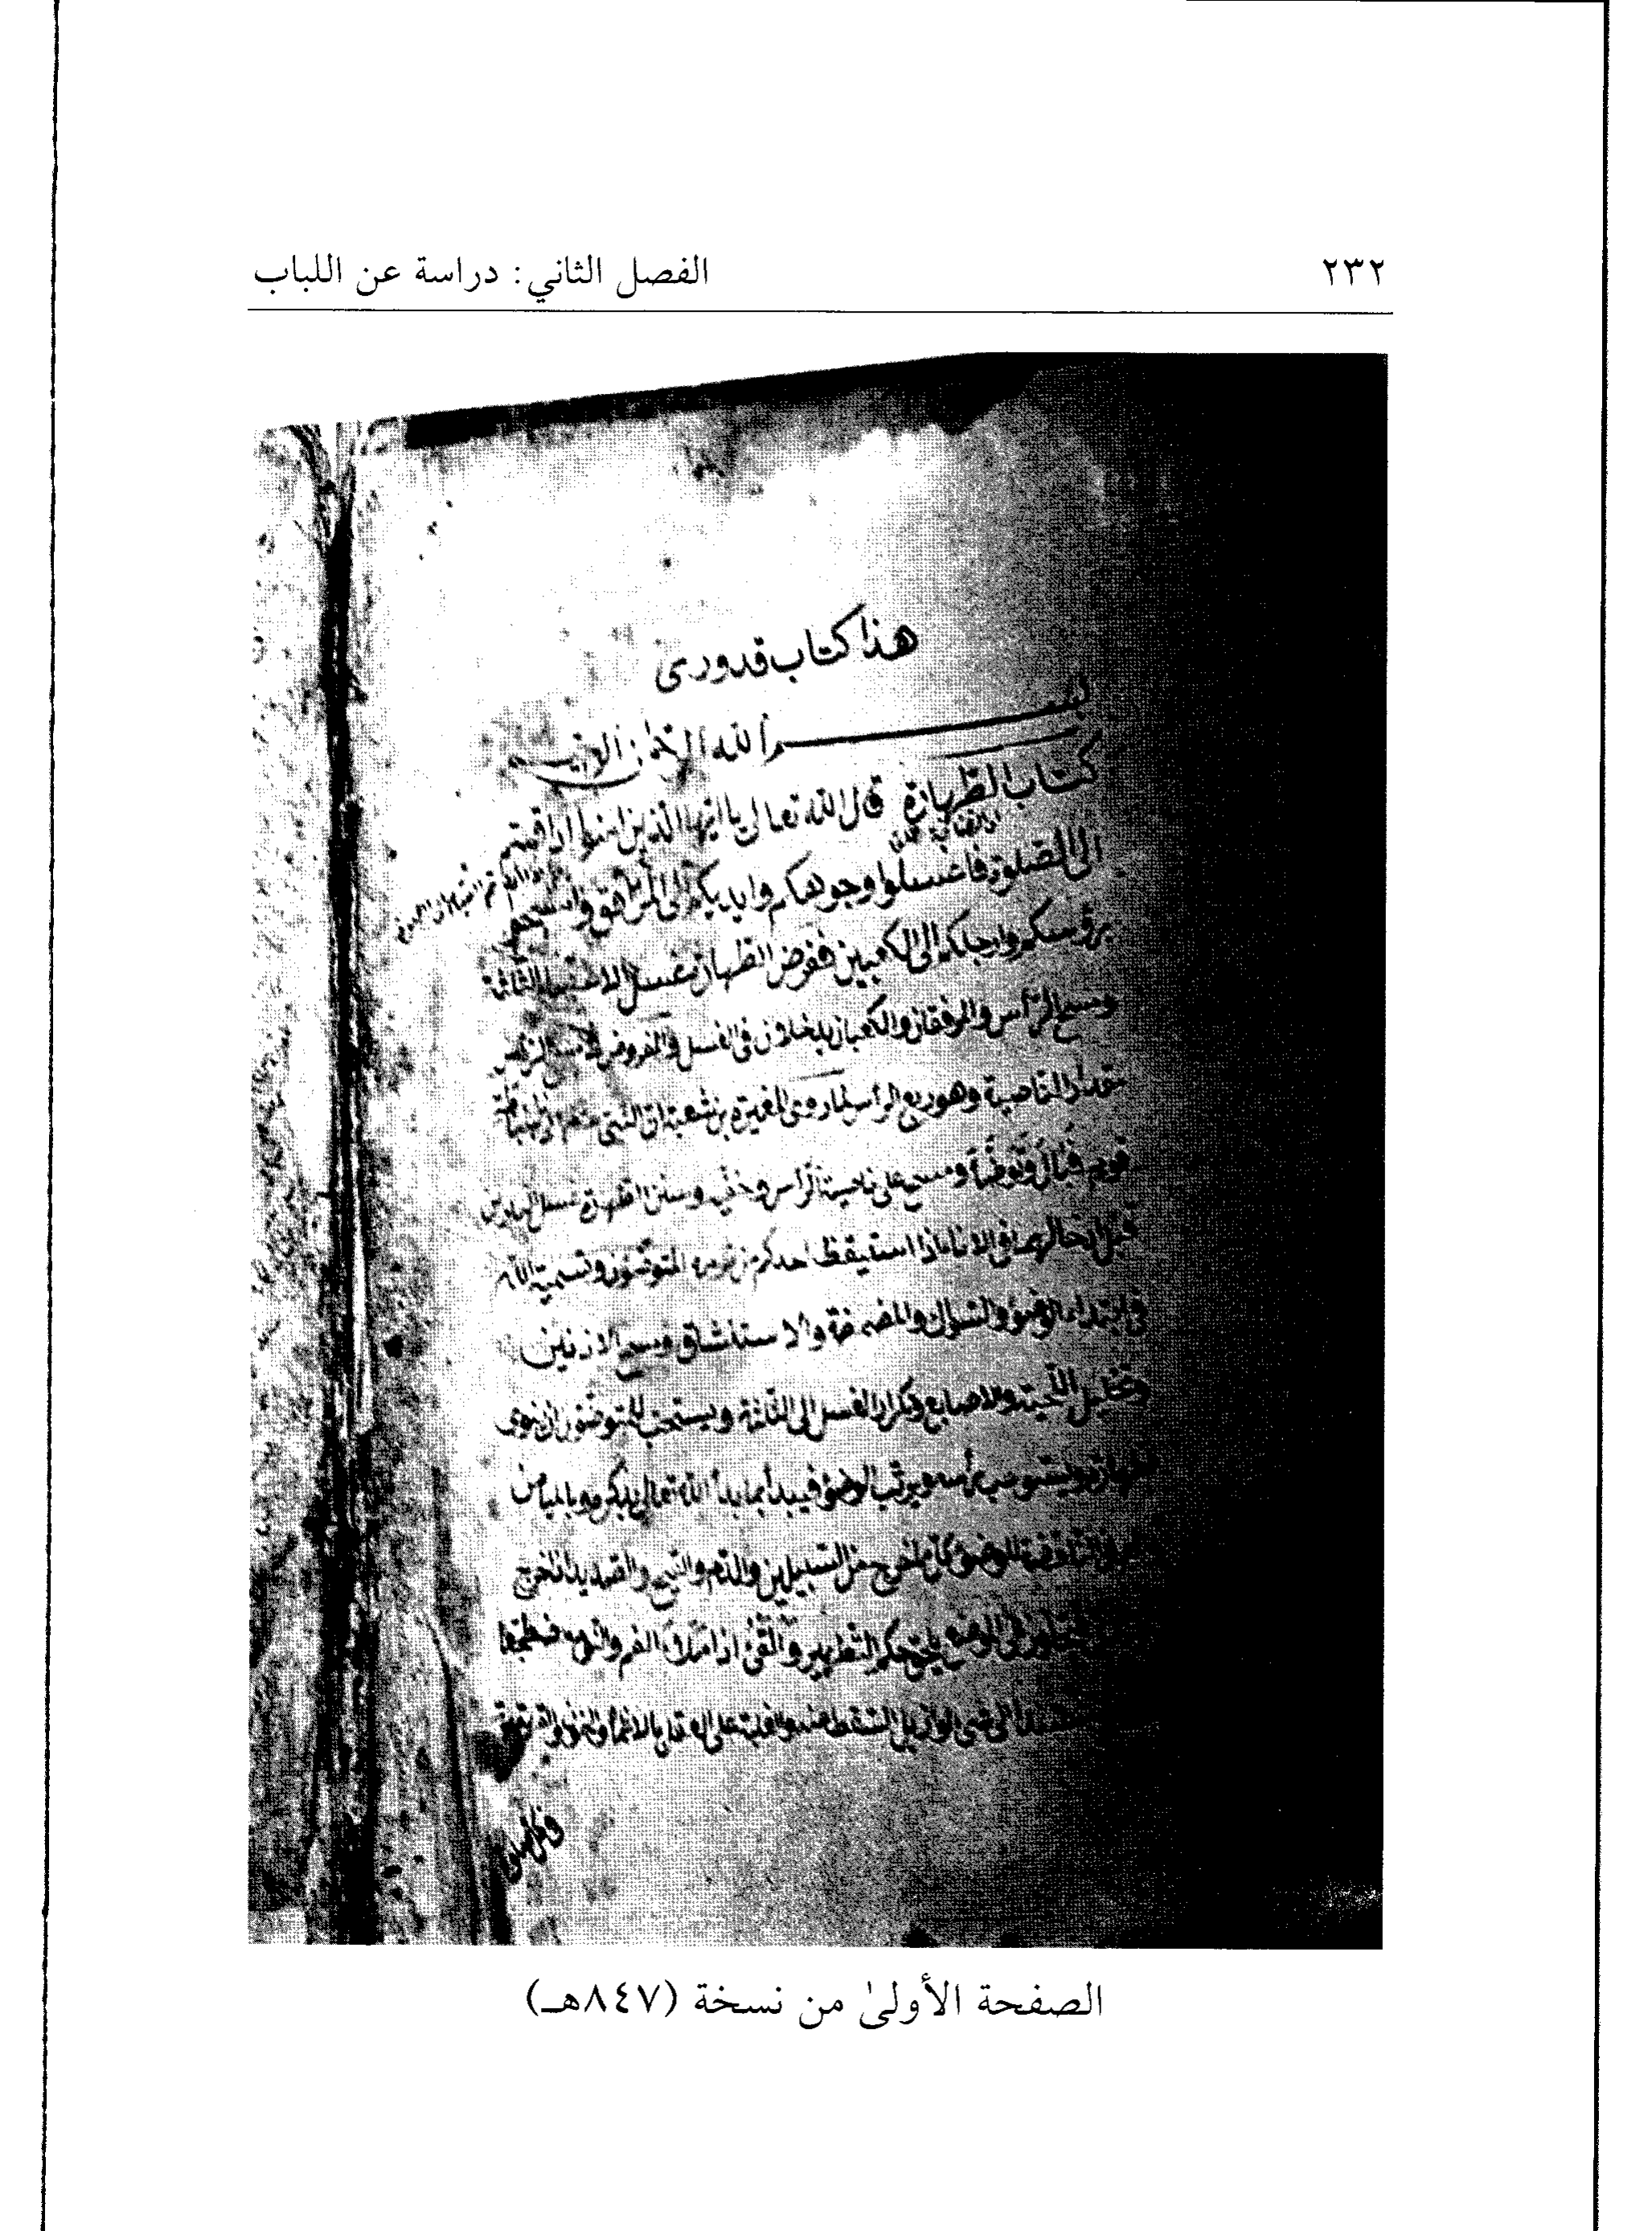 ٢٣٢
الفصل الثاني: دراسة عن اللباب
هذا كتاب قدورى
بسم الله الرحمن الرحيم
كتاب الطهارة قال الله تعالى يا ايها الذين امنوا اذا قمتم
الى الصلوة فاغسلوا وجوهكم وايديكم الى المرافق وامسحوا
برؤسكم وارجلكم الى الكعبين ففرض الطهارة غسل الاعضاء الثلثة
ومسح الرأس والمرفقان والكعبان يدخلان فى الغسل والمفروض فى مسح الرأس
مقدار الناصية وهو ربع الرأس لما روى المغيرة بن شعبة ان النبى
قوم فبال وتوضأ ومسح على ناصية الرأس وخفيه وسنن الطهارة غسل اليدين
قبل ادخالهما فى الاناء اذا استيقظ احدكم من نومه المتوضئ وتسمية الله
فى ابتداء الوضوء والسواك والمضمضة والاستنشاق ومسح الاذنين
وتخليل اللحية والاصابع وتكرار الغسل الى الثلثة ويستحب للمتوضئ ان ينوى
الطهارة ويستوعب رأسه ويرتب الوضوء فيبدأ بما بدأ الله تعالى بذكره وبالميامن
الناقضة للوضوء كل ما خرج من السبيلين والدم والقيح والصديد اذا خرج
الى موضع يلحقه حكم التطهير والقئ اذا ملأ الفم والنوم مضطجعا
الى شئ لو ازيل لسقط عنه والغلبة على العقل بالاغماء والجنون والقهقهة
الصفحة الأولىٰ من نسخة (٨٤٧هـ)